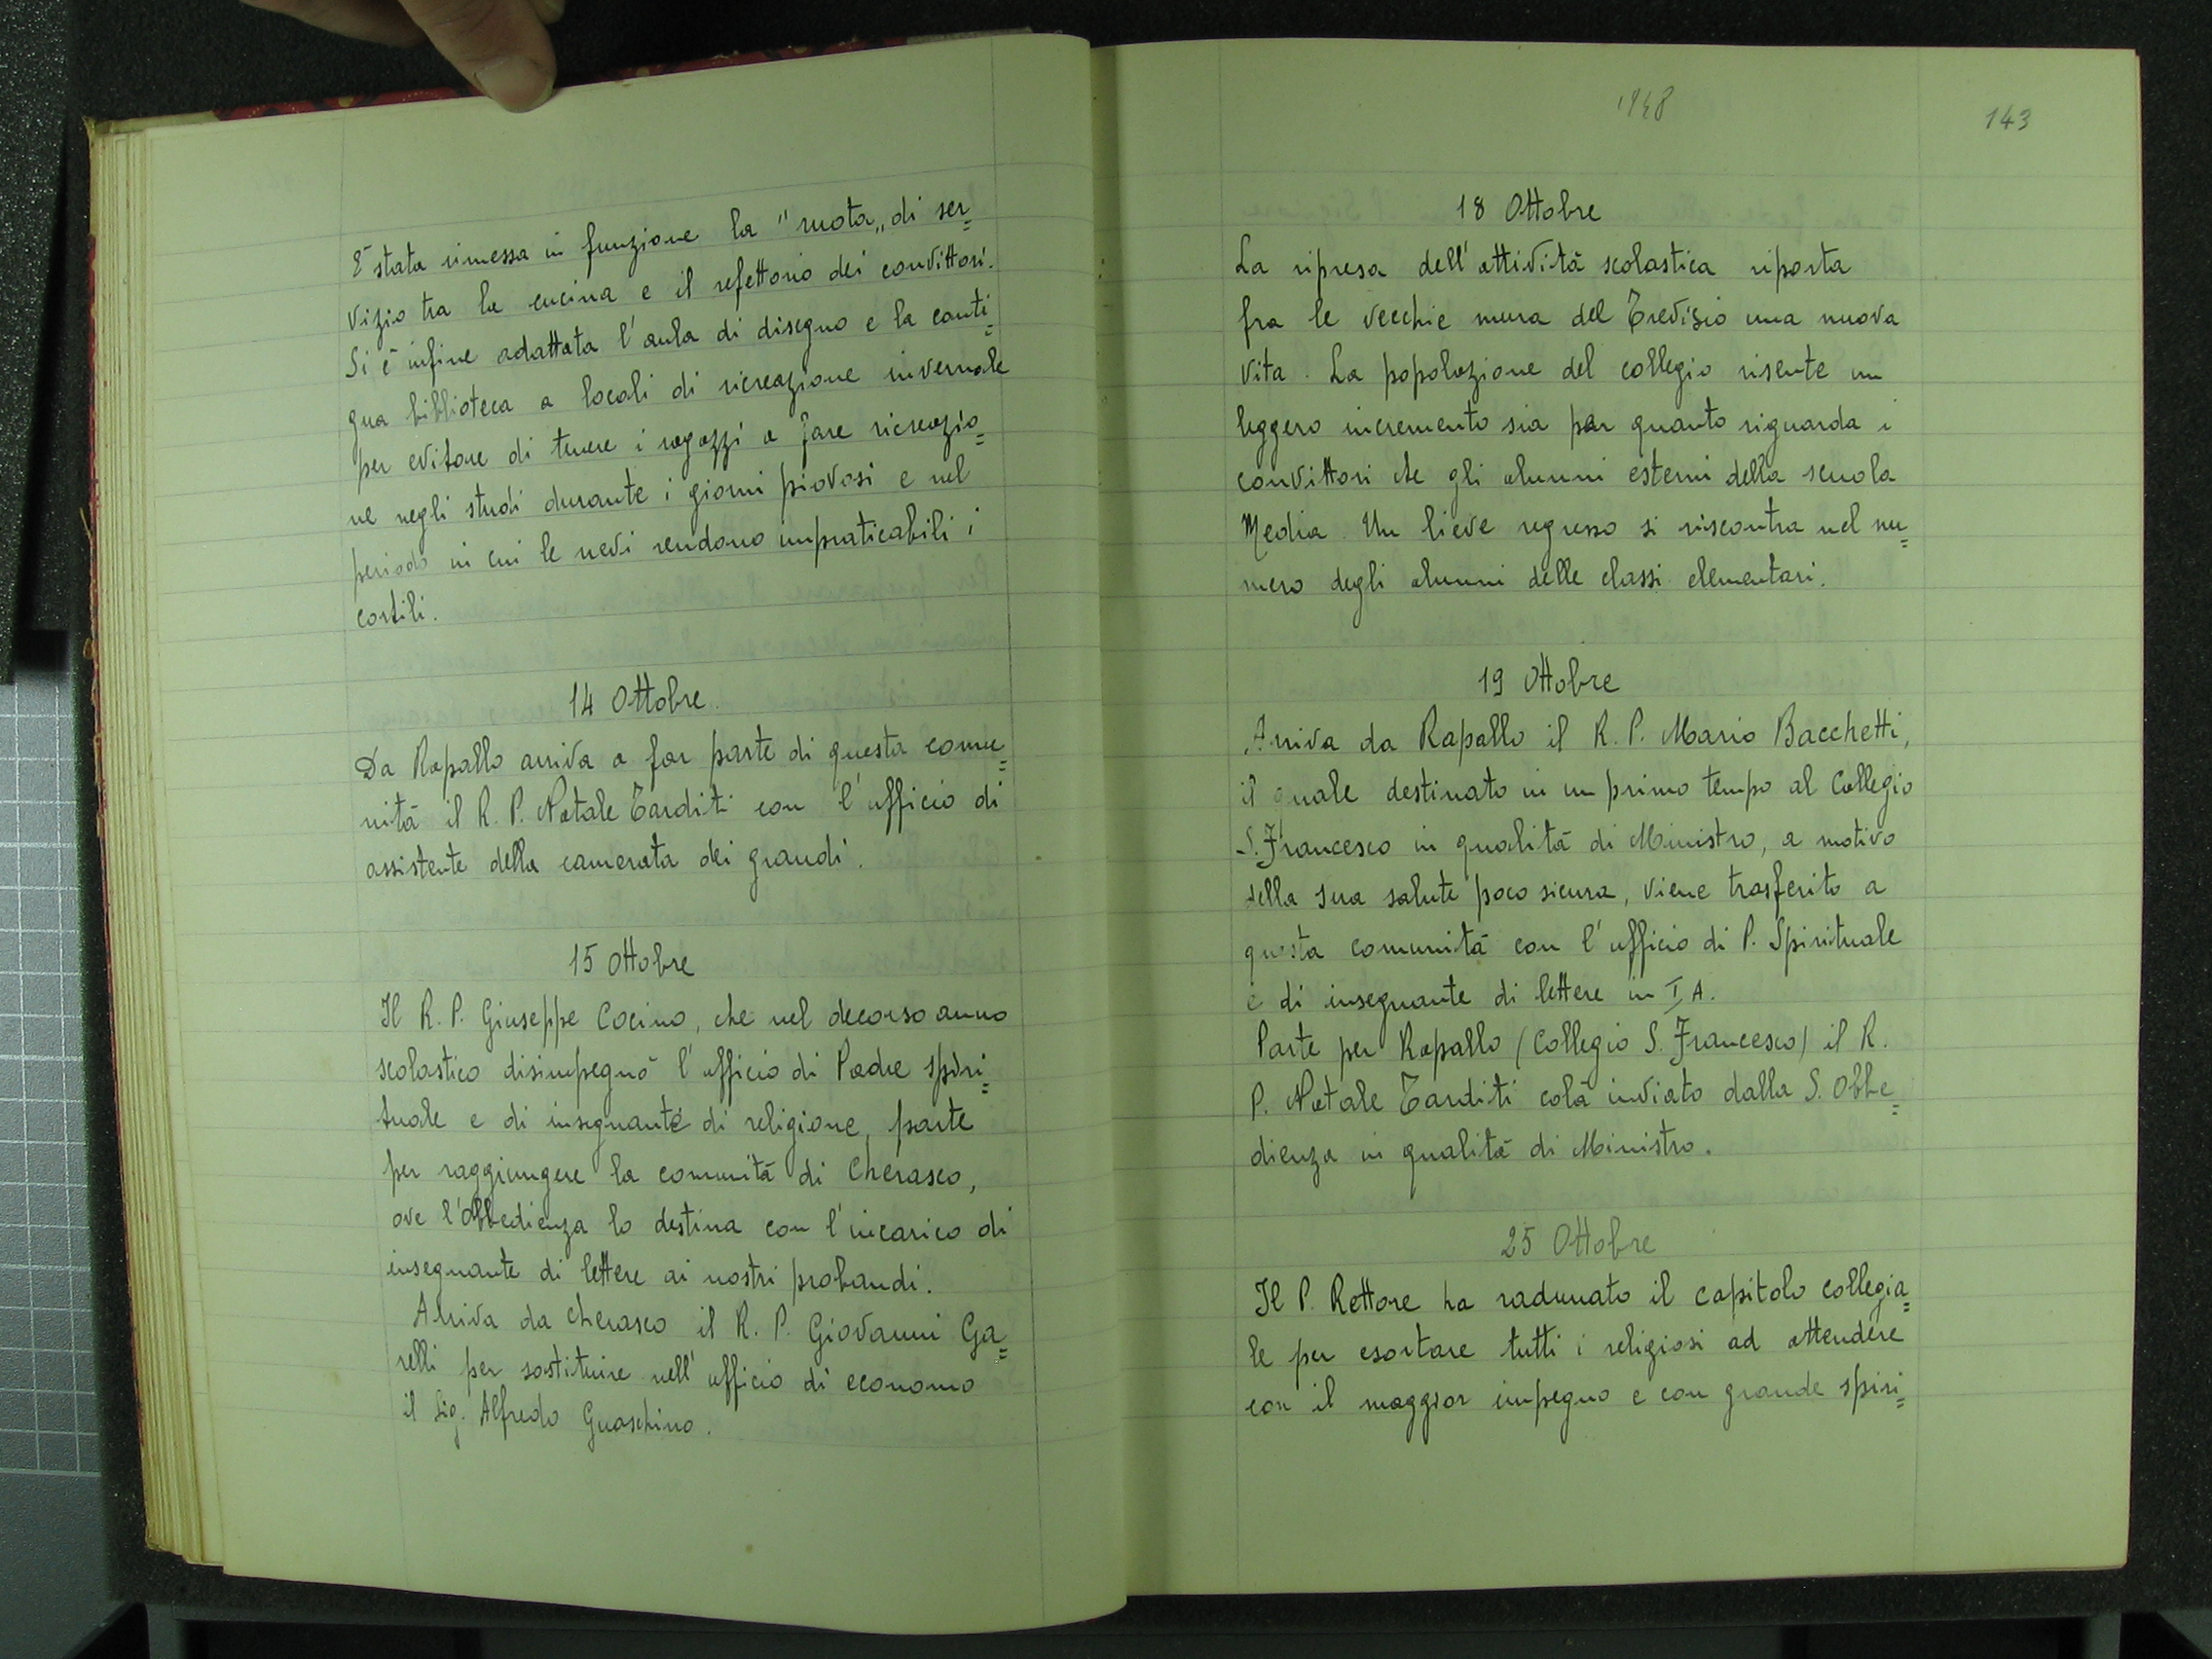 E' stata rimessa in funzione la "ruota„ di ser=
vizio tra la cucina e il refettorio dei convittori.
Si è infine adattata l'aula di disegno e la conti=
gua biblioteca a locali di ricreazione invernale
per evitare di tenere i ragazzi a fare ricreazio=
ne negli studi durante i giorni piovosi e nel
periodo in cui le nevi rendono impraticabili i
cortili.
14 Ottobre.
Da Rapallo arriva a far parte di questa comu=
nità il R. P. Natale Tarditi con l'ufficio di
assistente della camerata dei grandi.
15 Ottobre
Il R. P. Giuseppe Cocino, che nel decorso anno
scolastico disimpegnò l'ufficio di Padre spiri=
tuale e di insegnante di religione, parte
per raggiungere la comunità di Cherasco,
ove l'Obbedienza lo destina con l'incarico di
insegnante di lettere ai nostri probandi.
Arriva da Cherasco il R. P. Giovanni Ga=
relli per sostituire nell'ufficio di economo
il Sig. Alfredo Guaschino.
1948
143
18 Ottobre
La ripresa dell'attività scolastica riporta
fra le vecchie mura del Trevisio una nuova
vita. La popolazione del collegio risente un
leggero incremento sia per quanto riguarda i
convittori che gli alunni esterni della scuola
Media. Un lieve regresso si riscontra nel nu=
mero degli alunni delle classi elementari.
19 Ottobre
Arriva da Rapallo il R. P. Mario Bacchetti,
il quale destinato in un primo tempo al Collegio
S. Francesco in qualità di Ministro, a motivo
della sua salute poco sicura, viene trasferito a
questa comunità con l'ufficio di P. Spirituale
e di insegnante di lettere in I A.
Parte per Rapallo (Collegio S. Francesco) il R.
P. Natale Tarditi colà inviato dalla S. Obbe=
dienza in qualità di Ministro.
25 Ottobre
Il P. Rettore ha radunato il capitolo collegia=
le per esortare tutti i religiosi ad attendere
con il maggior impegno e con grande spiri=